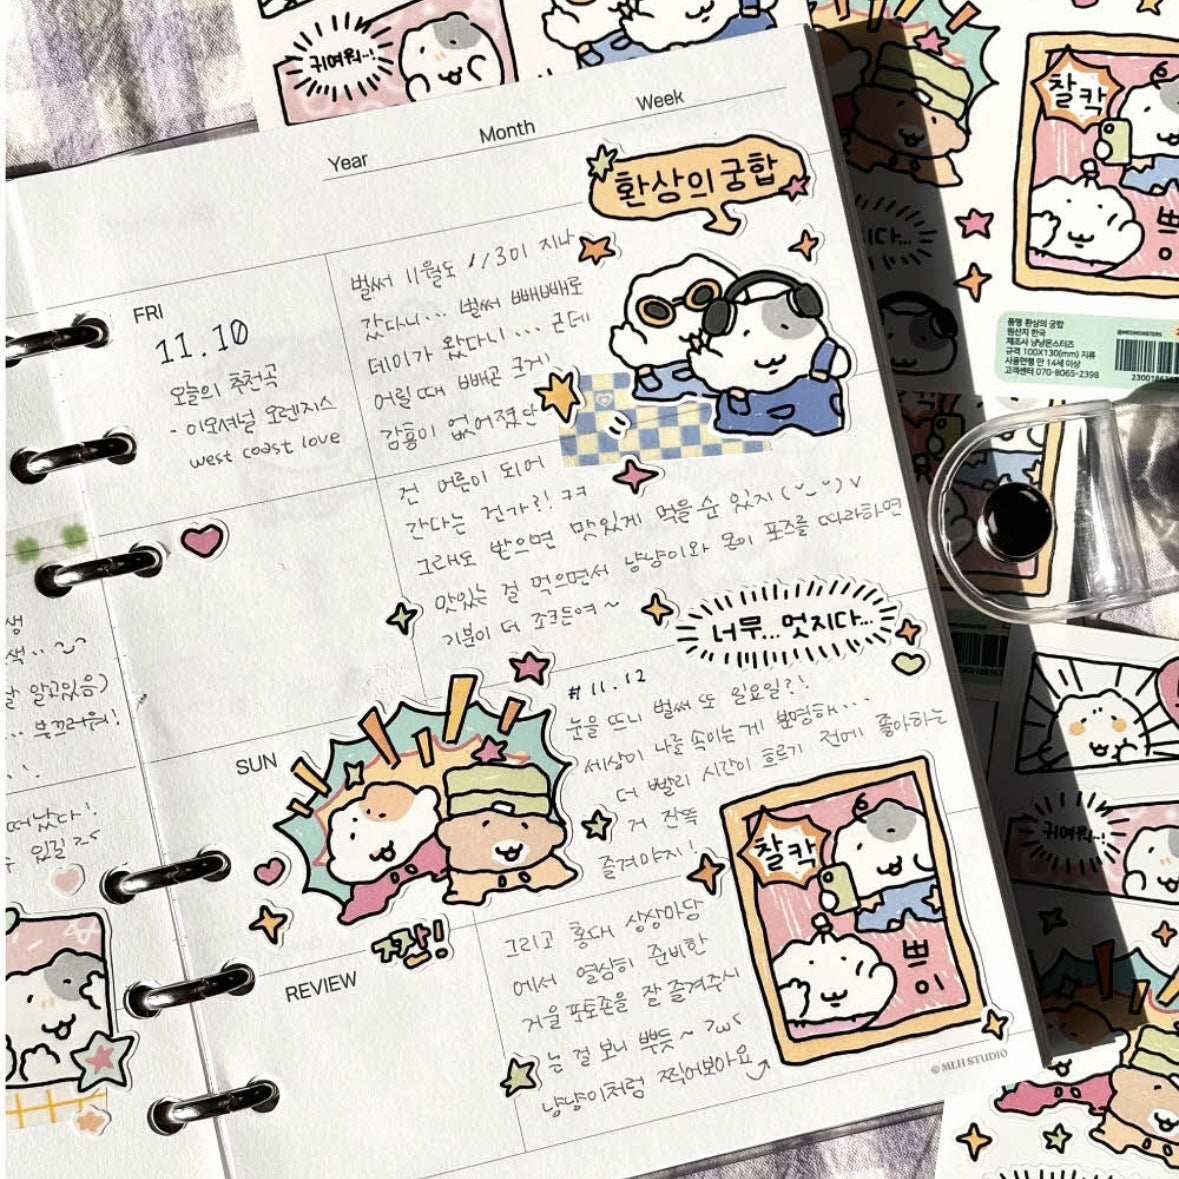 귀여워..!
Year
Month
Week
환상의 궁합
찰칵
FRI
11.10
오늘의 추천곡
- 이모셔널 오렌지스
west coast love
벌써 11월도 1/3이 지나
갔다니... 벌써 빼빼로
데이가 왔다니... 근데
어릴 때 빼곤 크게
감흥이 없어졌단
건 어른이 되어
간다는 건가?! ㅋㅋ
그래도 받으면 맛있게 먹을 순 있지
맛있는 걸 먹으면서 냥냥이와 몬이 포즈를 따라하면
기분이 더 조크든여~
너무...멋지다...
품명 환상의 궁합
원산지 한국
제조사 냥냥몬스터즈
규격 100X130(mm) 지류
사용연령 만 14세 이상
고객센터 070-8065-2398
알고있음)
부끄러워!
떠났다!
SUN
#11.12
눈을 뜨니 벌써 또 일요일?!
세상이 나를 속이는 게 분명해...
더 빨리 시간이 흐르기 전에 좋아하는
거 잔뜩
즐겨야지!
짠!
찰칵
쁘이
귀여워..!
REVIEW
그리고 홍대 상상마당
에서 열심히 준비한
거울 포토존을 잘 즐겨주시
는 걸 보니 뿌듯~
냥냥이처럼 찍어보아요
© MLH STUDIO